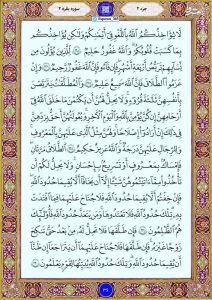 جزء ۲
سوره بقره ۲
لَّا يُؤَاخِذُكُمُ ٱللَّهُ بِٱللَّغْوِ فِىٓ أَيْمَٰنِكُمْ وَلَٰكِن يُؤَاخِذُكُم
بِمَا كَسَبَتْ قُلُوبُكُمْ وَٱللَّهُ غَفُورٌ حَلِيمٌ ۝ لِّلَّذِينَ يُؤْلُونَ مِن
نِّسَآئِهِمْ تَرَبُّصُ أَرْبَعَةِ أَشْهُرٍ فَإِن فَآءُو فَإِنَّ ٱللَّهَ غَفُورٌ رَّحِيمٌ ۝ وَإِنْ
عَزَمُوا۟ ٱلطَّلَٰقَ فَإِنَّ ٱللَّهَ سَمِيعٌ عَلِيمٌ ۝ وَٱلْمُطَلَّقَٰتُ يَتَرَبَّصْنَ
بِأَنفُسِهِنَّ ثَلَٰثَةَ قُرُوٓءٍ وَلَا يَحِلُّ لَهُنَّ أَن يَكْتُمْنَ مَا خَلَقَ ٱللَّهُ فِىٓ
أَرْحَامِهِنَّ إِن كُنَّ يُؤْمِنَّ بِٱللَّهِ وَٱلْيَوْمِ ٱلْءَاخِرِ وَبُعُولَتُهُنَّ أَحَقُّ بِرَدِّهِنَّ
فِى ذَٰلِكَ إِنْ أَرَادُوٓا۟ إِصْلَٰحًا وَلَهُنَّ مِثْلُ ٱلَّذِى عَلَيْهِنَّ بِٱلْمَعْرُوفِ
وَلِلرِّجَالِ عَلَيْهِنَّ دَرَجَةٌ وَٱللَّهُ عَزِيزٌ حَكِيمٌ ۝ ٱلطَّلَٰقُ مَرَّتَانِ
فَإِمْسَاكٌ بِمَعْرُوفٍ أَوْ تَسْرِيحٌ بِإِحْسَٰنٍ وَلَا يَحِلُّ لَكُمْ أَن
تَأْخُذُوا۟ مِمَّآ ءَاتَيْتُمُوهُنَّ شَيْـًٔا إِلَّآ أَن يَخَافَآ أَلَّا يُقِيمَا حُدُودَ ٱللَّهِ
فَإِنْ خِفْتُمْ أَلَّا يُقِيمَا حُدُودَ ٱللَّهِ فَلَا جُنَاحَ عَلَيْهِمَا فِيمَا ٱفْتَدَتْ
بِهِۦ تِلْكَ حُدُودُ ٱللَّهِ فَلَا تَعْتَدُوهَا وَمَن يَتَعَدَّ حُدُودَ ٱللَّهِ فَأُو۟لَٰٓئِكَ
هُمُ ٱلظَّٰلِمُونَ ۝ فَإِن طَلَّقَهَا فَلَا تَحِلُّ لَهُۥ مِنۢ بَعْدُ حَتَّىٰ تَنكِحَ
زَوْجًا غَيْرَهُۥ فَإِن طَلَّقَهَا فَلَا جُنَاحَ عَلَيْهِمَآ أَن يَتَرَاجَعَآ إِن ظَنَّآ
أَن يُقِيمَا حُدُودَ ٱللَّهِ وَتِلْكَ حُدُودُ ٱللَّهِ يُبَيِّنُهَا لِقَوْمٍ يَعْلَمُونَ ۝
۳۶